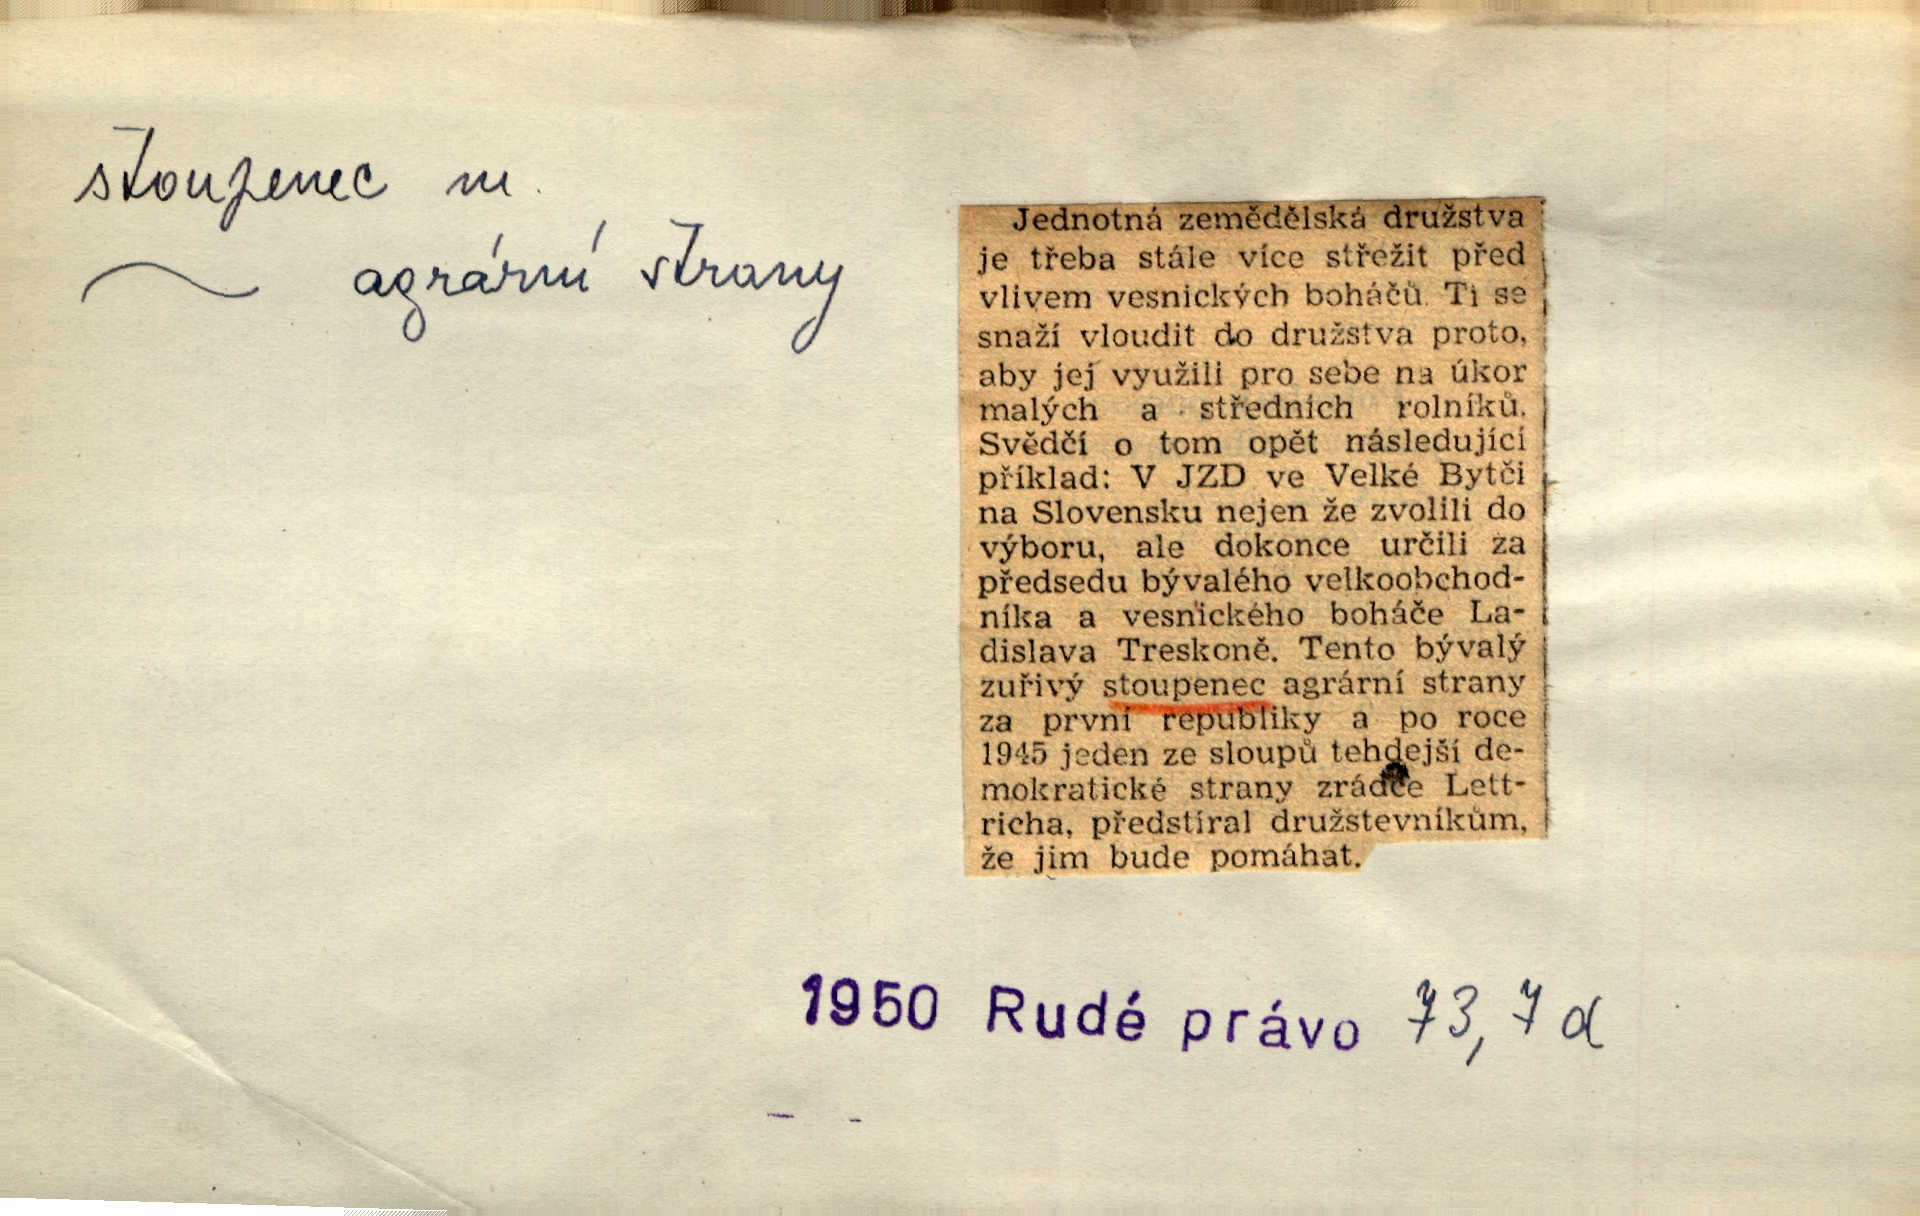 stoupenec m.
~ agrární strany
Jednotná zemědělská družstva
je třeba stále více střežit před
vlivem vesnických boháčů. Ti se
snaží vloudit do družstva proto,
aby jej využili pro sebe na úkor
malých a středních rolníků.
Svědčí o tom opět následující
příklad: V JZD ve Velké Bytči
na Slovensku nejen že zvolili do
výboru, ale dokonce určili za
předsedu bývalého velkoobchod-
níka a vesnického boháče La-
dislava Treskoně. Tento bývalý
zuřivý stoupenec agrární strany
za první republiky a po roce
1945 jeden ze sloupů tehdejší de-
mokratické strany zrádce Lett-
richa, předstíral družstevníkům,
že jim bude pomáhat.
1950 Rudé právo 73, 7 d